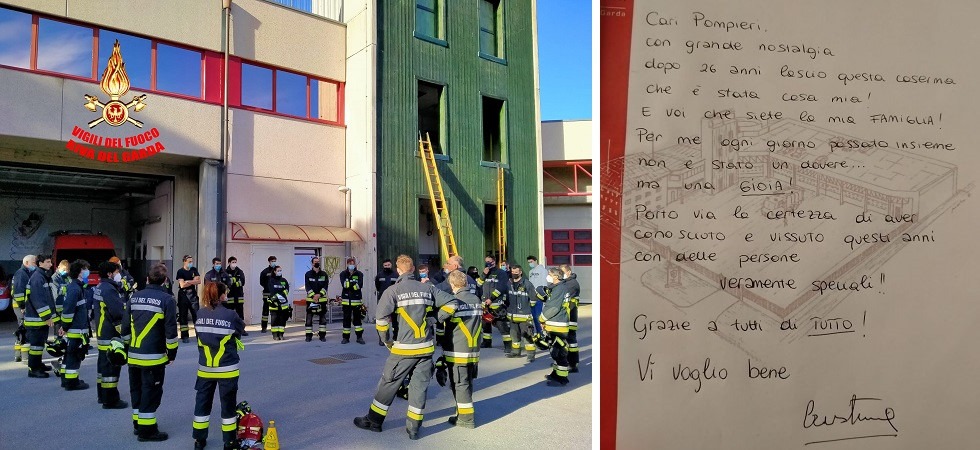 VIGILI DEL FUOCO
RIVA DEL GARDA
VIGILI DEL FUOCO
VIGILI DEL FUOCO
VIGILI DEL FUOCO
Garda
Cari Pompieri,
con grande nostalgia
dopo 26 anni lascio questa caserma
che è stata casa mia!
E voi che siete la mia FAMIGLIA!
Per me ogni giorno passato insieme
non è stato un dovere...
ma una GIOIA!
Porto via la certezza di aver
conosciuto e vissuto questi anni
con delle persone
veramente speciali!!
Grazie a tutti di TUTTO!
Vi voglio bene